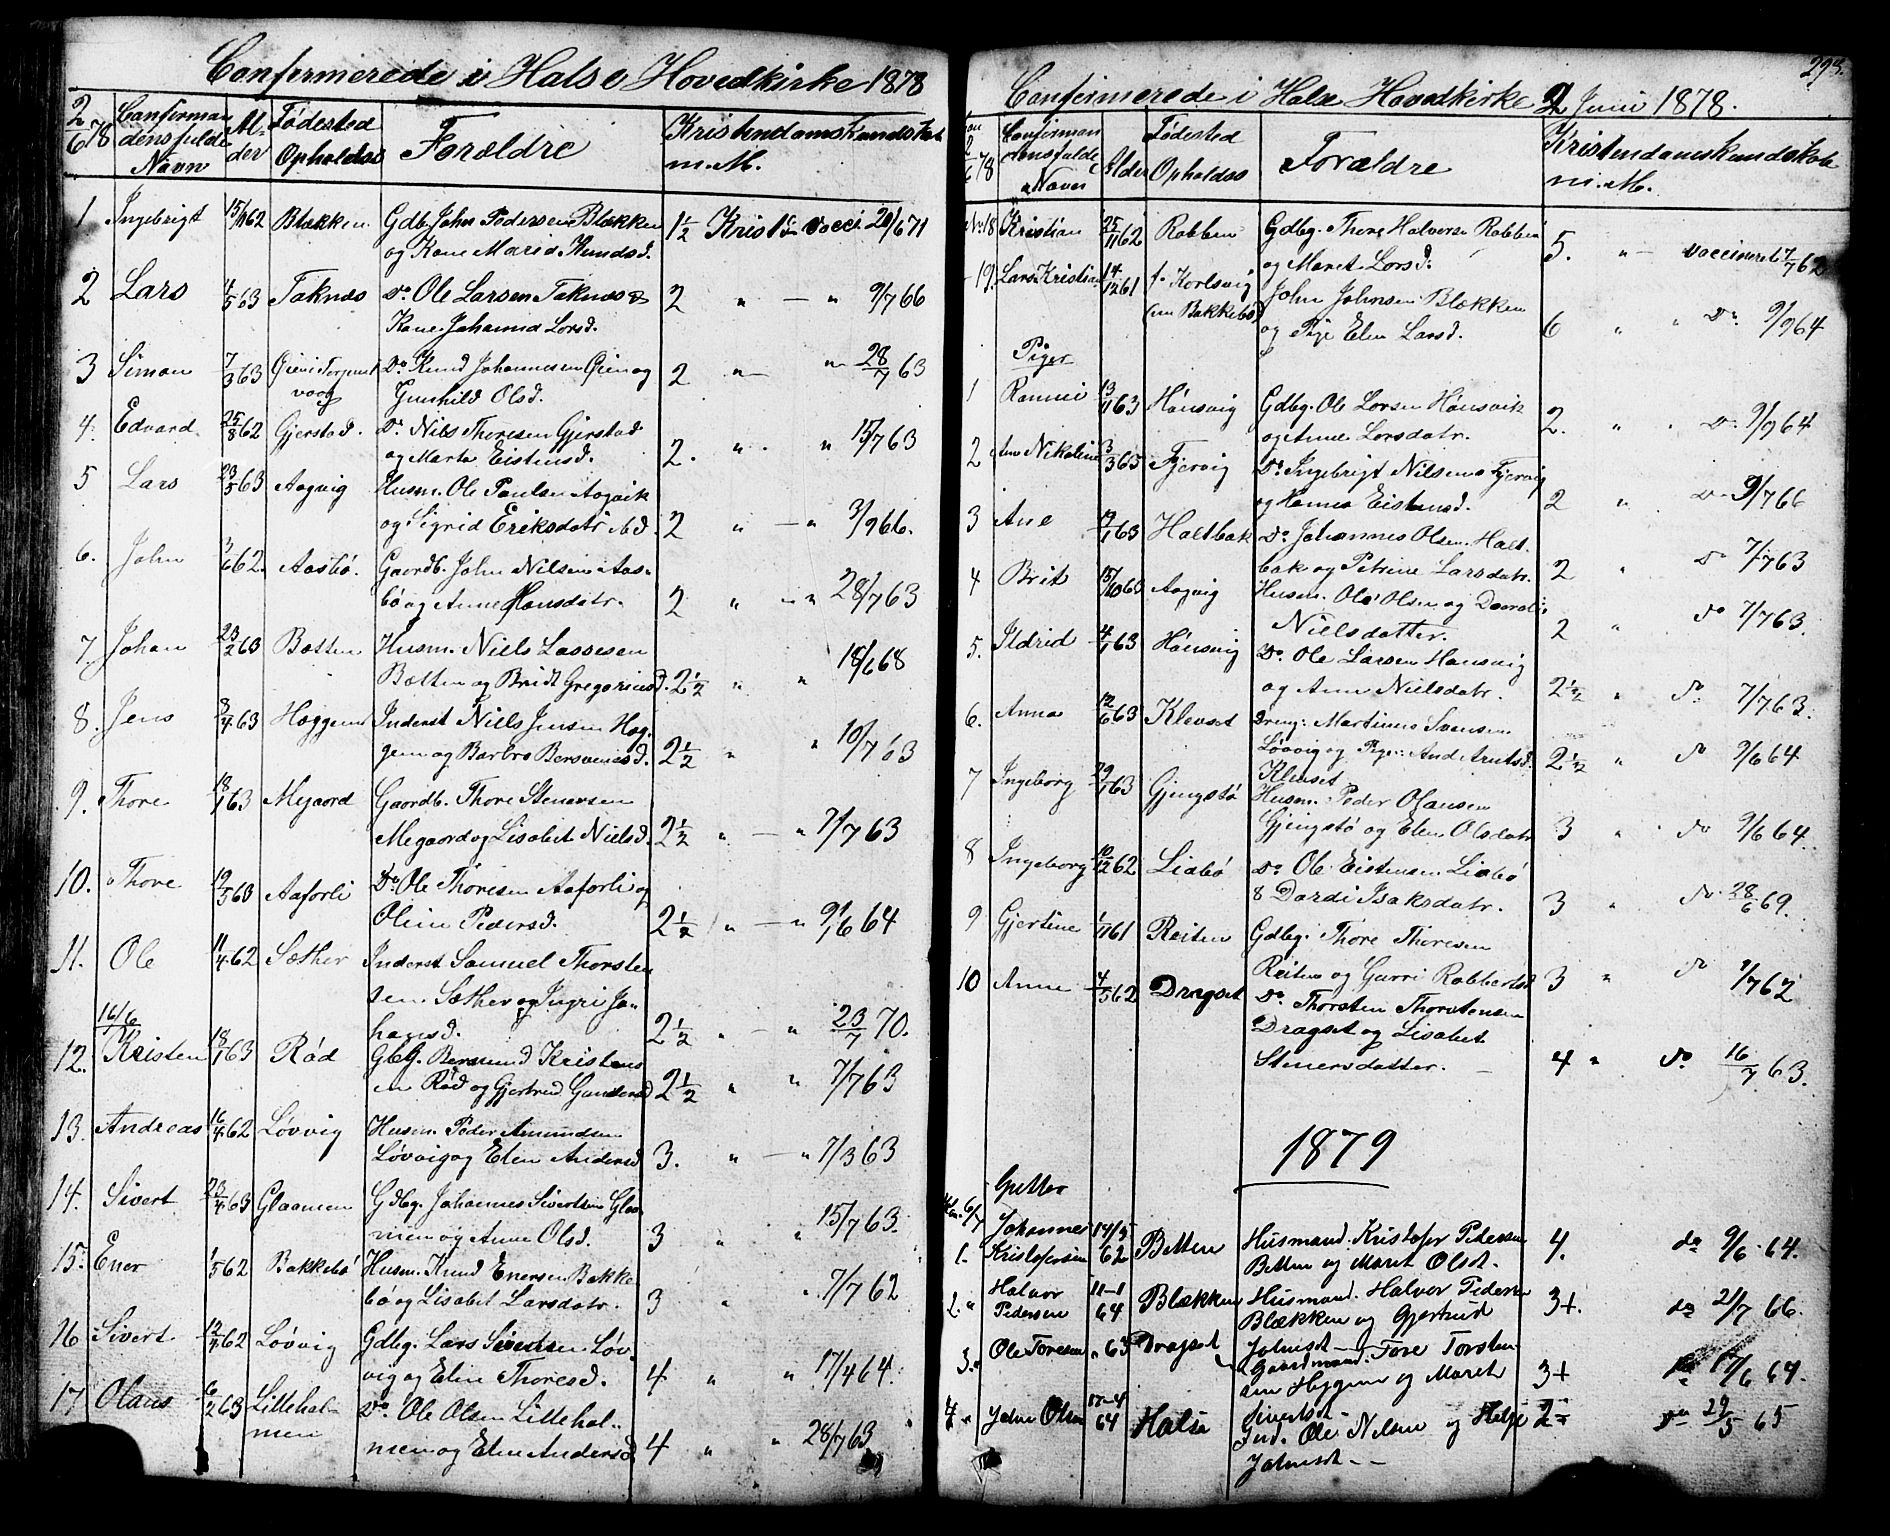 Confirmerede i Halse Hovedkirke 1878
2/6 78 Confirman Al- Fødested Forældre Kristendomskundskab
densfulde der Opholds
Navn m. M.
1 Ingebrigt 15/11 62 Blækken Gdb. John Pedersen Blækken 1½ Krist vacci. 29/6 71
og Kone Marie Knudsd.
2 Lars 4/5 63 Taknæs Do Ole Larsen Taknæs & 2 " — " 9/7 66
Kone Johanna Larsd.
3 Simon 7/3 63 Do Knud Johannesen Øien og 2 " — " 28/7 63
vaag Gunhild Olsd.
4. Edvard 25/8 62 Gjerstad Do Nils Thoresen Gjerstad
og Marta Eistensd. 2. " " 15/7 63
5 Lars 23/5 63 Aagvig Husm. Ole Paulsen Aagvik
og Sigrid Eriksdatr 2 " — " 3/9 66.
6. John 3/6 62. Aasbø. Gaardb. John Nilsen Aas-
bø og Anne Hansdatr. 2 " — " 28/7 63
7. Johan 23/2 63 Bætten Husm. Niels Lassesen
Bætten og Bridt Gregoriusd. 2½ " " 18/6 68
8. Jens 8/4 63 Hæggem Inderst Niels Jensen Hæg-
gem og Barbro Bersvensd. 2½ " " 10/7 63
9. Thore 18/1 63 Megaard Gaardb. Thore Stenersen
Megaard og Lisabet Nielsd. 2½ " — " 7/7 63
10. Thore 19/5 63 Aaforli Do Ole Thoresen Aaforli og
Oline Pedersd. 2½ " — " 9/6 64
11. Ole 11/4 62 Sæther Inderst Samuel Thorsten
sen Sæther og Ingri Jo-
hansd. 2½ " — " 23/7 70.
16/6
12. Kristen 18/1 63 Rød Gbg. Bersvend Kristens
en Rød og Gjertrud Gundersd 2½ " " 7/7 63
13. Andreas 16/4 62 Løvvig Husm. Peder Amundsen
Løvvig og Elen Andersd 3. " — " 7/3 63
14. Sivert 23/4 63 Glaamen Gdbg. Johannes Sivertsen Glaa-
men og Anne Olsd. 3 " " 15/7 63.
15. Ener 1/5 62 Bakkebø Husm. Knud Enersen Bakke
bø og Lisabet Larsdatr. 3 " " 7/7 62
16 Sivert 12/4 62 Løvvig Gdbg. Lars Sivertsen Løv-
vig og Elen Thoresd. 4 " " 17/4 64.
17 Olaus 6/2 63 Lillehol- Do Ole Olsen Lillehol-
men men og Elen Andersd 4 " " 28/7 63
293.
Confirmerede i Halse Hovedkirke 2 Juni 1878.
2/6 78 Confirman Alder Fødested Forældre Kristendomskundskab
densfulde Opholds
Navn m. M.
No 18 Kristian 25/11 62 Rabben Gdbg. Thore Halvorsen Rabben
og Maret Larsd. 5. " — vaccineret 7/7 62
19. Lars Kristian 14/12 61 f. Korlsvig John Johnsen Blækken
(nu Bakkebø) og Pige Elen Larsd. 6 " " Do 9/9 64
Piger
1 Ronnei 13/1 63 Hønsvig Gdbg. Ole Larsen Hønsvik
og Anne Larsdatr. 2. " " Do 9/9 64
2 Ane Nikoline 3/3 63 Fjervig Do Ingebrigt Nilsens Fjervig
og Hanna Eistensd. 2 " Do 9/7 66
3 Ane 63 Holtbak Do Johannes Olsen Holt-
bak og Petrine Larsdatr. 2 " Do 7/7 63
4 Brit 15/10 63 Aagvig Husm. Ole Olsen og Dordi
Nielsdatter. 2 " Do 7/7 63.
5. Ildrid 4/1 63 Hønsvig Do Ole Larsen Hønsvig
og Ane Nielsdatr. 2½ " Do 7/7 63.
6. Anna 12/6 63 Klevset Dreng: Martinus Svensen
Løvvig og Pige: Ane Arntsd. 2½ " Do 9/6 64
Klevset
7 Ingeborg 29/1 63 Gjengstø Husm. Peder Olausen
Gjengstø og Elen Olsdatr 3 " " Do 9/6 64.
8 Ingeborg 10/12 62 Liabø Do Ole Eistensen Liabø
& Dordi Isaksdatr. 3 " Do 28/6 69.
9 Gjertine 61 Reiten Gdbg. Thore Thoresen
Reiten og Gurri Robbertsd 3 " Do 7/7 62
10 Anne 4/5 62 Dragset Do Thorsten Thorstensen
Dragset og Lisabet
Stenersdatter. 4 " Do 16/7 63.
1879
Gutter
6/7
Johannes 14/5 Husmand Kristofer Pedersen
1. Kristofersen 62 Betten Betten og Maret Olsdt. 4. do 9/6 64.
2. Halvor 11-1 Blækken Husmand. Halvor Pedersen 3+. do 21/7 66.
Pedersen 64 Blækken og Gjertrud
Johnsdt
3. Ole Toresen " 63 Dragset Gaardmand. Tore Torsten-
sen Hyggen og Maret 3+ do 17/6 64.
Sivertsdt
4 John Olsen 17-4 64 Halse Ind. Ole Nelsen og Helje 2 do 29/5 65
Johnsdt